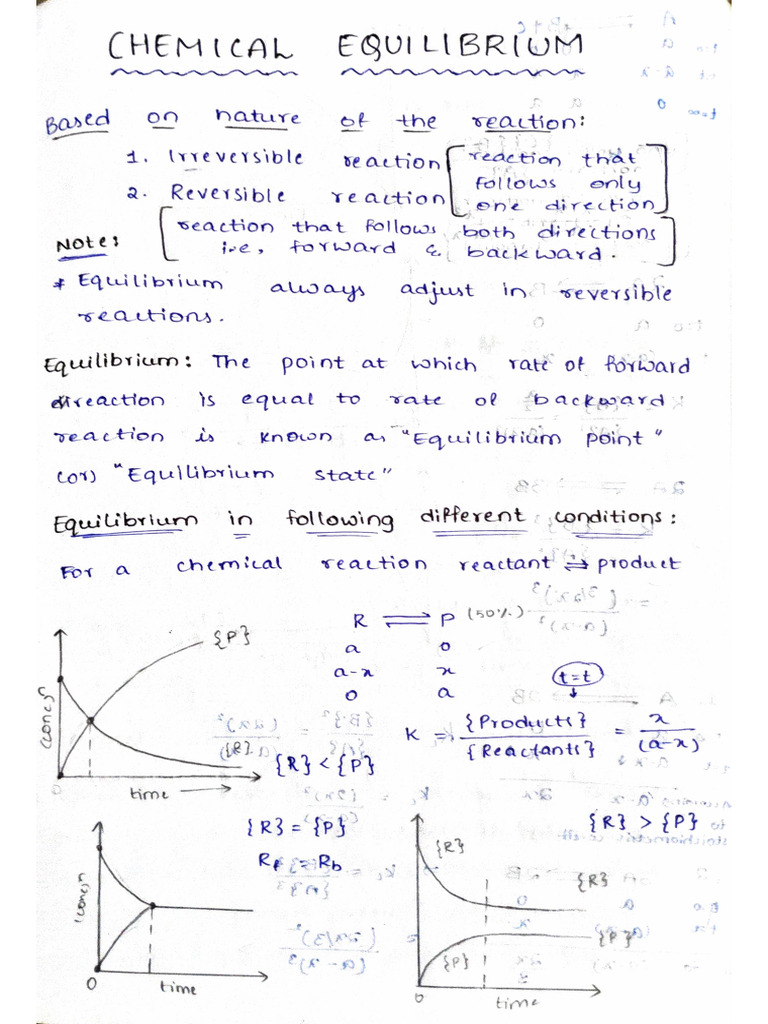 CHEMICAL EQUILIBRIUM
Based on nature of the reaction:
1. Irreversible reaction [reaction that follows only one direction]
2. Reversible reaction
[reaction that follows both directions i.e, forward & backward.]
Note:
* Equilibrium always adjust in reversible
reactions.
Equilibrium: The point at which rate of forward
reaction is equal to rate of backward
reaction is known as "Equilibrium point"
(or) "Equilibrium state"
Equilibrium in following different conditions:
For a chemical reaction reactant ⇌ product
R ⇌ P (50%)
a 0
a-x x
0 a
t=t
K = {Products} / {Reactants} = x / (a-x)
{P}
(conc)n
{R}
{R} < {P}
0
time
{R} = {P}
Rf = Rb
(conc)n
0
time
{R} > {P}
{R}
{R}
{P}
{P}
0
time